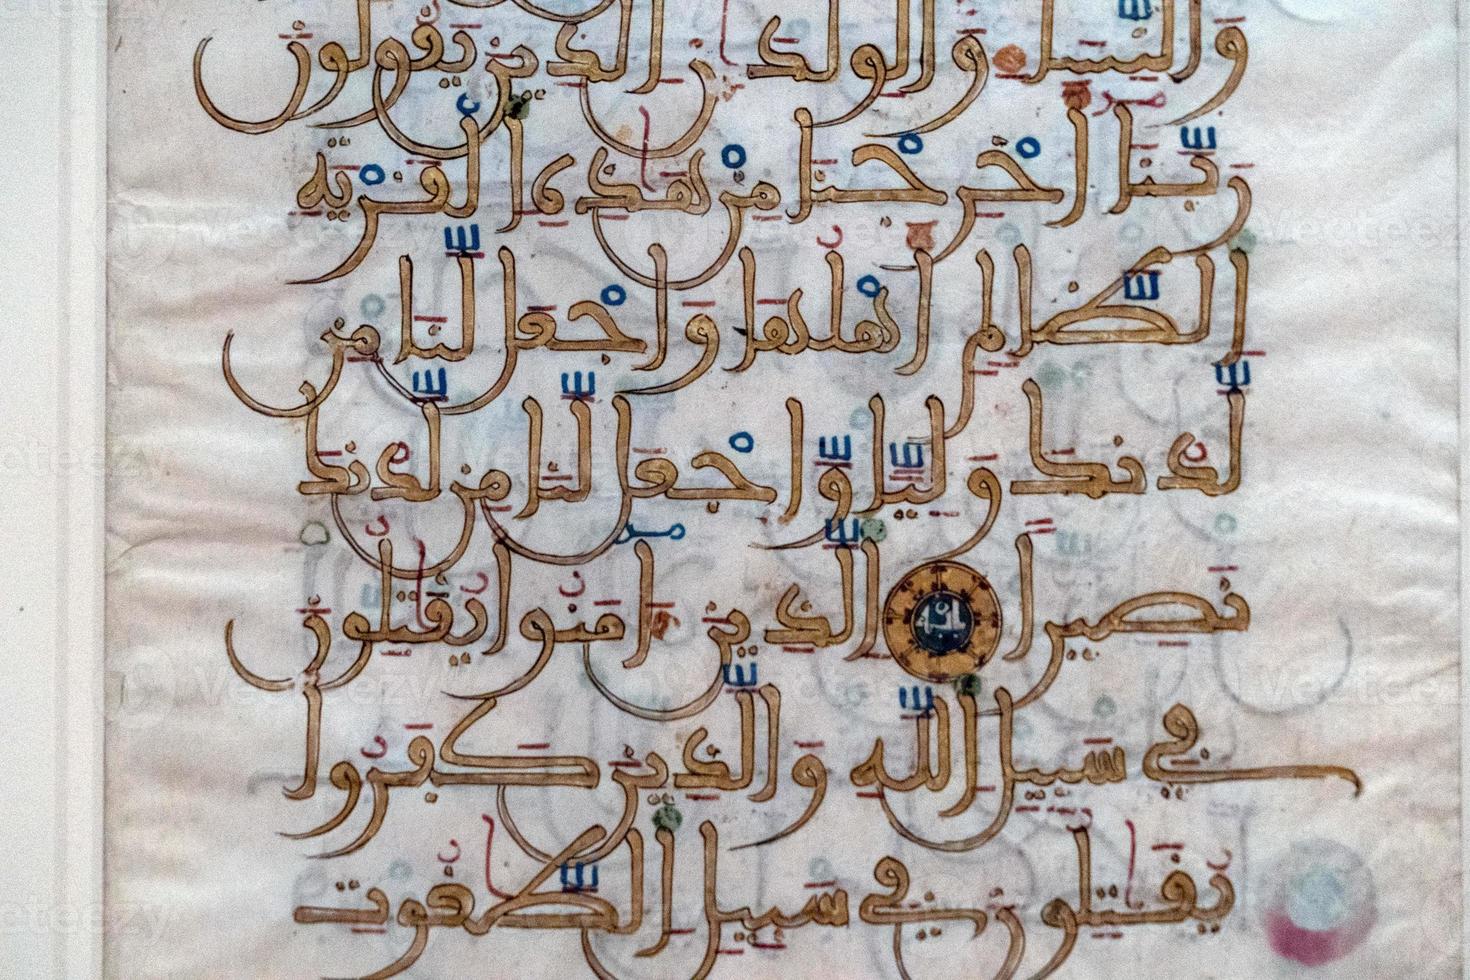 وَالنِّسَاءِ وَالْوِلْدَٰنِ الَّذِينَ يَقُولُونَ
رَبَّنَا أَخْرِجْنَا مِنْ هَٰذِهِ الْقَرْيَةِ
الظَّالِمِ أَهْلُهَا وَاجْعَل لَّنَا مِن
لَّدُنكَ وَلِيًّا وَاجْعَل لَّنَا مِن لَّدُنكَ
نَصِيرًا الَّذِينَ ءَامَنُوا يُقَٰتِلُونَ
فِي سَبِيلِ اللَّهِ وَالَّذِينَ كَفَرُوا
يُقَٰتِلُونَ فِي سَبِيلِ الطَّٰغُوتِ